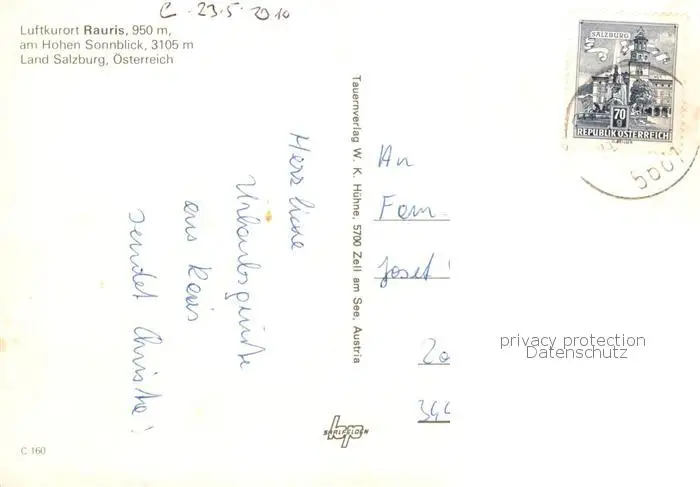 C. 23.5.2010
Luftkurort Rauris, 950 m,
am Hohen Sonnblick, 3105 m
Land Salzburg, Österreich
Herzliche
Urlaubsgrüße
aus
sendet Christa!
Tauernverlag W. K. Hühne, 5700 Zell am See, Austria
SALZBURG
70
g
REPUBLIK ÖSTERREICH
An
Fam.
Josef
privacy protection
Datenschutz
SAALFELDEN
C 160